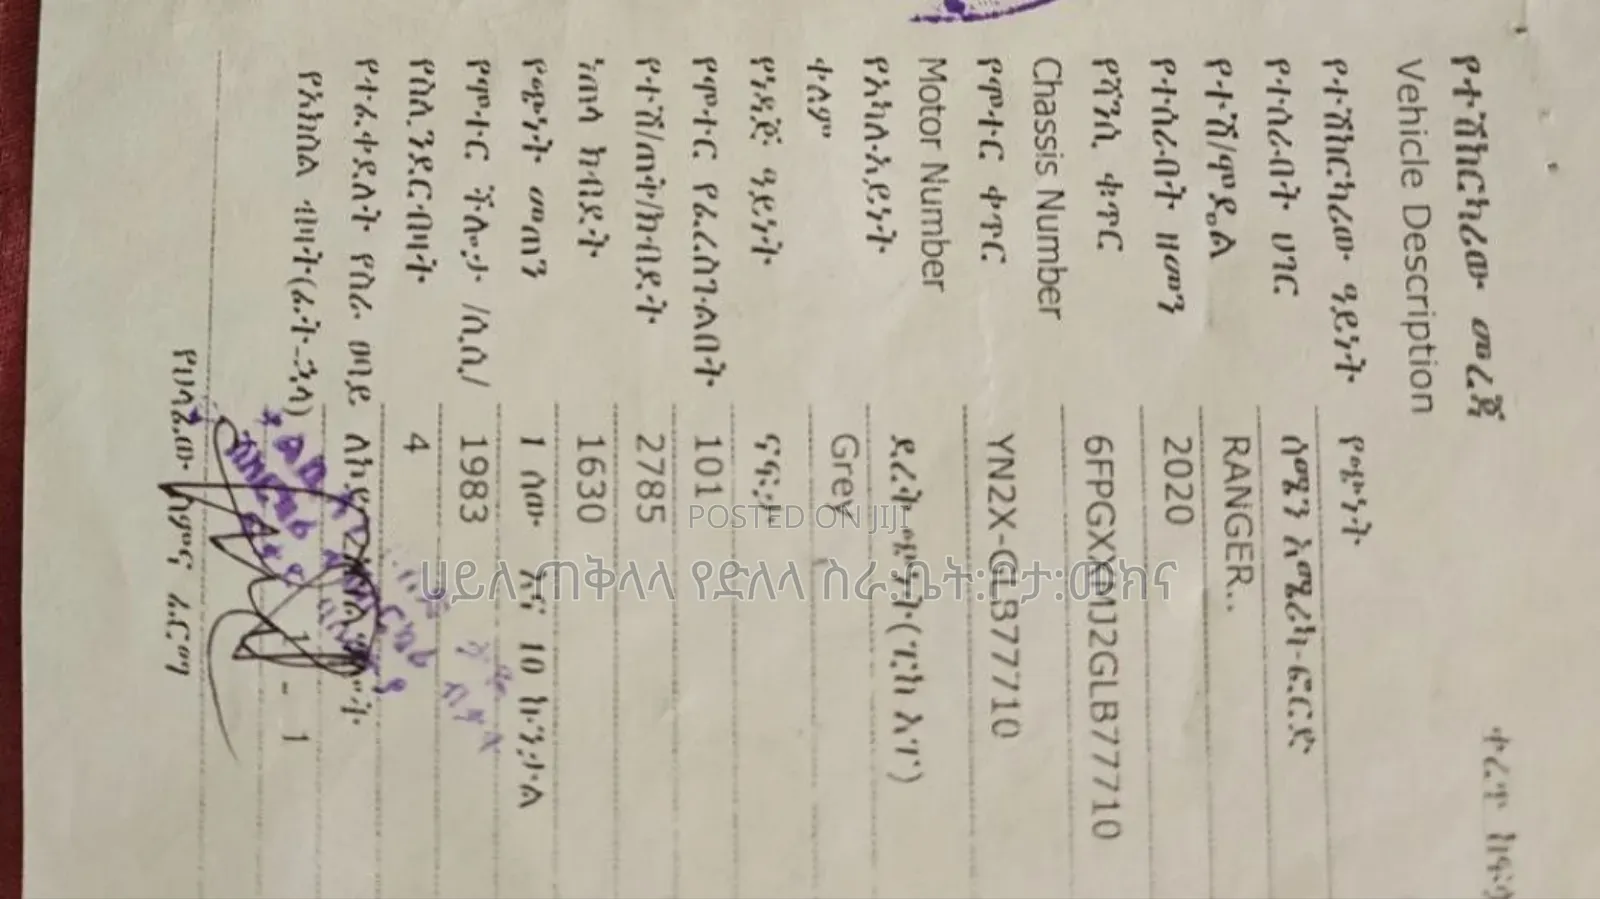 የተሽከርካሪው መረጃ
Vehicle Description
የተሽከርካሪው ዓይነት የጭነት
የተሰራበት ሀገር ሰሜን አሜሪካ-ፍርድ
የተሽ/ሞዴል RANGER..
የተሰራበት ዘመን 2020
የሻንሲ ቁጥር 6FPGXXMJ2GLB77710
Chassis Number
የሞተር ቁጥር YN2X-GLB77710
Motor Number
የአካሉ አይነት ደረት ጭነት(ፒክ አፕ)
ቀለም Grey
የነዳጅ ዓይነት ናፍታ
የሞተር የፈረስጉልበት 101
የተሽ/ጠቅ/ክብደት 2785
ነጠላ ክብደት 1630
የጭነት መጠን 1 ሰው እና 10 ኩንታል
የሞተር ችሎታ /ሲሲ/ 1983
የሲሊንደርብዛት 4
የተፈቀደለት የስራ ወባይ ለአይ
የአክስል ብዛት(ፊት-ኋላ) 1 - 1
የሀላፊው ስምና ፊርማ
ቀረጥ ከፍሎ
POSTED ON JIJI
ሀይለጠቅላላ የድለላ ስራ ቤት:ታ:ወክና